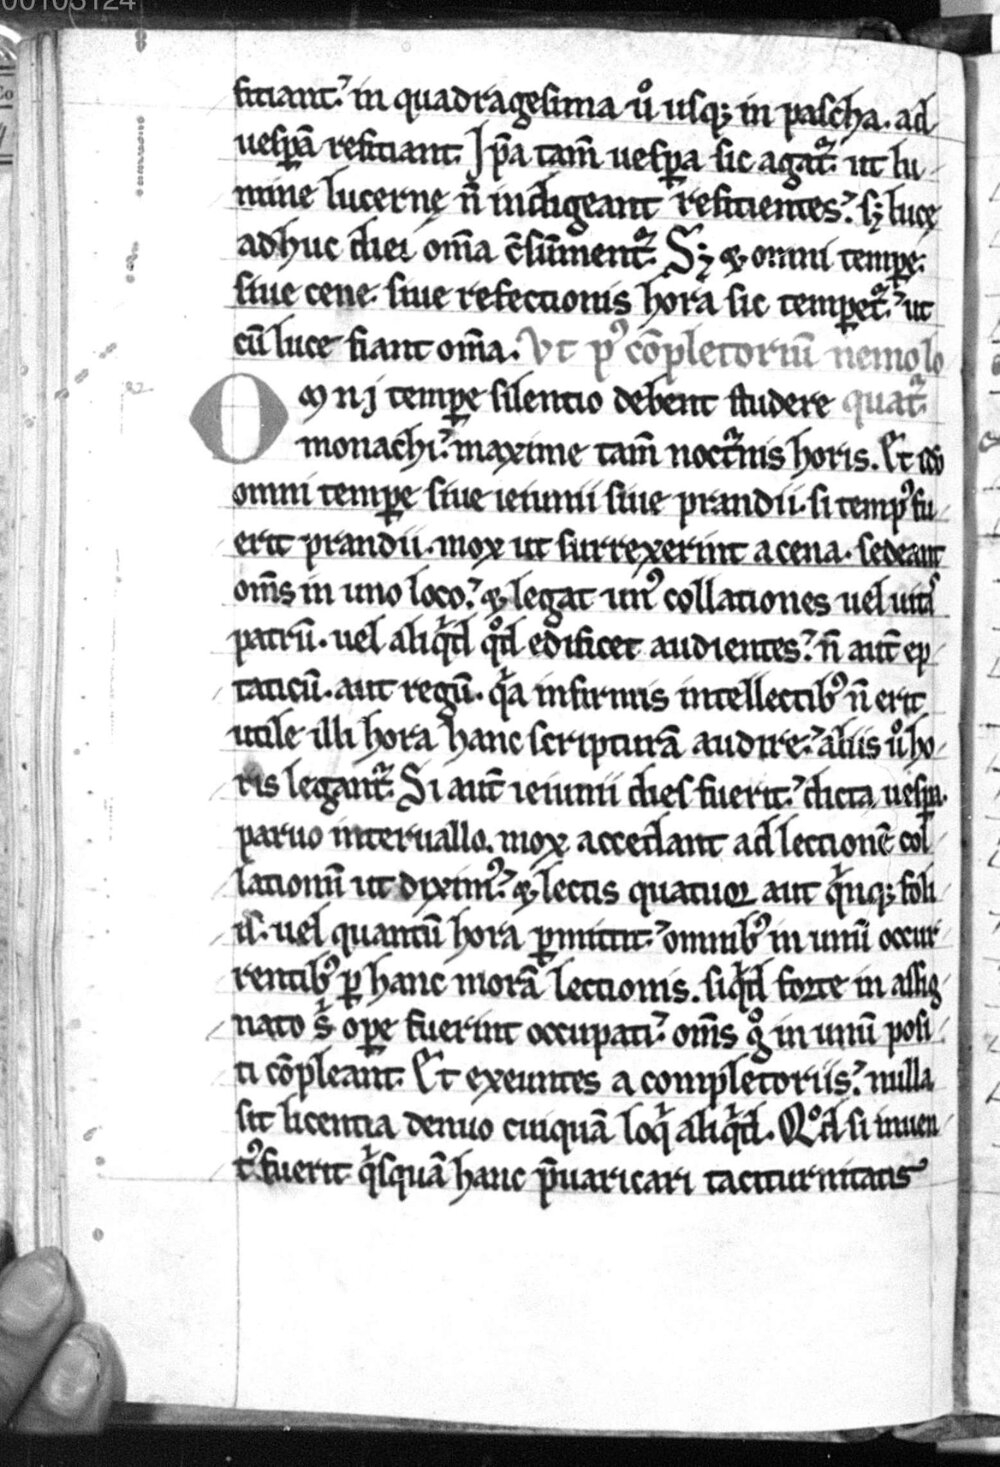 00103124
ficiant. in quadragesima ů usq; in pascha. ad
uesꝑā reficiant. Ip̄a tam̄ uesꝑa sic agat᷑. ut lu
mine lucernę n̄ indigeant reficientes. sꝫ lucę
adhuc diei om̄a c̄sūment᷑. Sꝫ ⁊ omni temꝑe.
siue cene. siue refectionis hora sic temꝑet᷑. ut
cū luce fiant om̄a. Vt pꝰ cōpletoriū nemo lo
OMNJ temꝑe silentio debent studere quat᷑
monachi. maxime tam̄ noct᷑nis horis. Et ido
omni temꝑe siue ieiunii siue prandii. si tempꝰ fu
erit prandii. mox ut surrexerint a cena. sedeant
om̄s in uno loco. ⁊ legat unꝰ collationes uel uitas
patrū. uel aliqͥd qͦd edificet audientes. n̄ aut̄ ep
taticū. aut regū. qͣa infirmis intellectibꝰ n̄ erit
utile illi hora hanc scripturā audire. aliis ů ho
ris legant᷑. Si aut̄ ieiunii dies fuerit. dicta uesꝑa.
paruo interuallo. mox accedant ad lectionē col
lationū ut diximꝰ. ⁊ lectis quatuor aut qͥnq; foli
is. uel quantū hora ꝑmittit. omnibꝰ in unū occur
rentibꝰ ꝑ hanc morā lectionis. siqͥd forte in assig
nato sͥ opꝑe fuerint occupati. om̄s gͦ in unū posi
ti cōpleant. Et exeuntes a completoriis. nulla
sit licentia denuo cuiquā loqͥ aliqͥd. Qͦd si inuen
tꝰ fuerit qͥsquā hanc p̄uaricari taciturnitatis